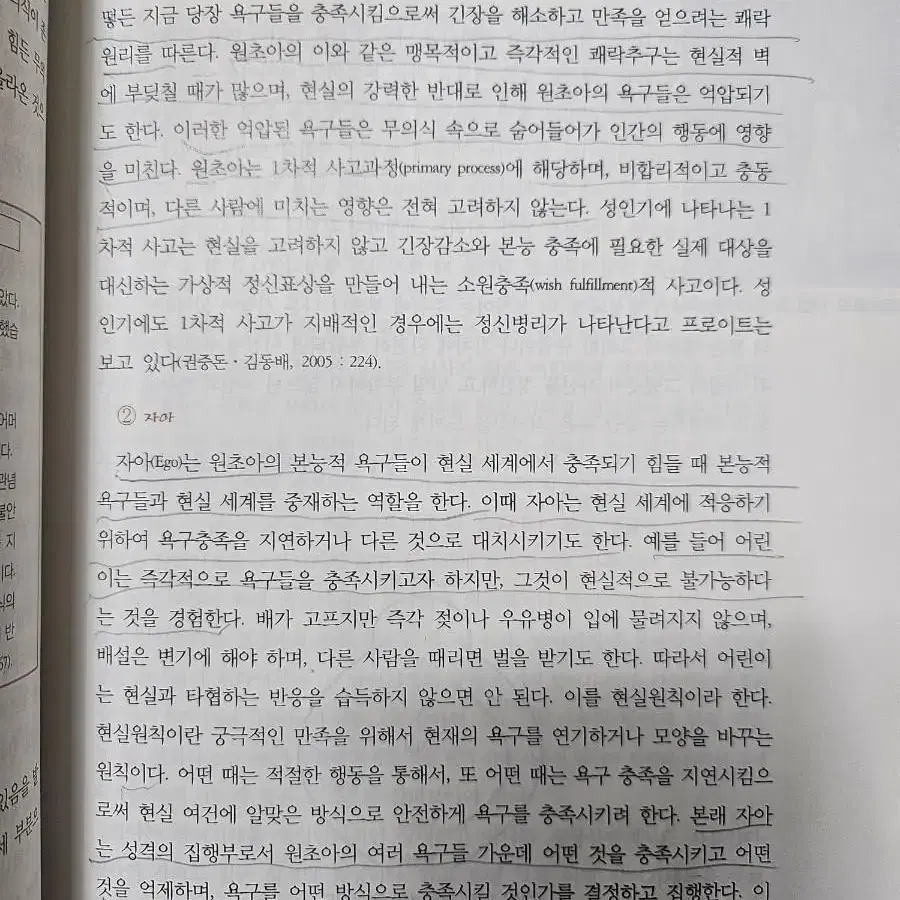 떻든 지금 당장 욕구들을 충족시킴으로써 긴장을 해소하고 만족을 얻으려는 쾌락
원리를 따른다. 원초아의 이와 같은 맹목적이고 즉각적인 쾌락추구는 현실적 벽
에 부딪칠 때가 많으며, 현실의 강력한 반대로 인해 원초아의 욕구들은 억압되기
도 한다. 이러한 억압된 욕구들은 무의식 속으로 숨어들어가 인간의 행동에 영향
을 미친다. 원초아는 1차적 사고과정(primary process)에 해당하며, 비합리적이고 충동
적이며, 다른 사람에 미치는 영향은 전혀 고려하지 않는다. 성인기에 나타나는 1
차적 사고는 현실을 고려하지 않고 긴장감소와 본능 충족에 필요한 실제 대상을
대신하는 가상적 정신표상을 만들어 내는 소원충족(wish fulfillment)적 사고이다. 성
인기에도 1차적 사고가 지배적인 경우에는 정신병리가 나타난다고 프로이트는
보고 있다(권중돈·김동배, 2005 : 224).
② 자아
자아(Ego)는 원초아의 본능적 욕구들이 현실 세계에서 충족되기 힘들 때 본능적
욕구들과 현실 세계를 중재하는 역할을 한다. 이때 자아는 현실 세계에 적응하기
위하여 욕구충족을 지연하거나 다른 것으로 대치시키기도 한다. 예를 들어 어린
이는 즉각적으로 욕구들을 충족시키고자 하지만, 그것이 현실적으로 불가능하다
는 것을 경험한다. 배가 고프지만 즉각 젖이나 우유병이 입에 물려지지 않으며,
배설은 변기에 해야 하며, 다른 사람을 때리면 벌을 받기도 한다. 따라서 어린이
는 현실과 타협하는 반응을 습득하지 않으면 안 된다. 이를 현실원칙이라 한다.
현실원칙이란 궁극적인 만족을 위해서 현재의 욕구를 연기하거나 모양을 바꾸는
원칙이다. 어떤 때는 적절한 행동을 통해서, 또 어떤 때는 욕구 충족을 지연시킴으
로써 현실 여건에 알맞은 방식으로 안전하게 욕구를 충족시키려 한다. 본래 자아
는 성격의 집행부로서 원초아의 여러 욕구들 가운데 어떤 것을 충족시키고 어떤
것을 억제하며, 욕구를 어떤 방식으로 충족시킬 것인가를 결정하고 집행한다. 이